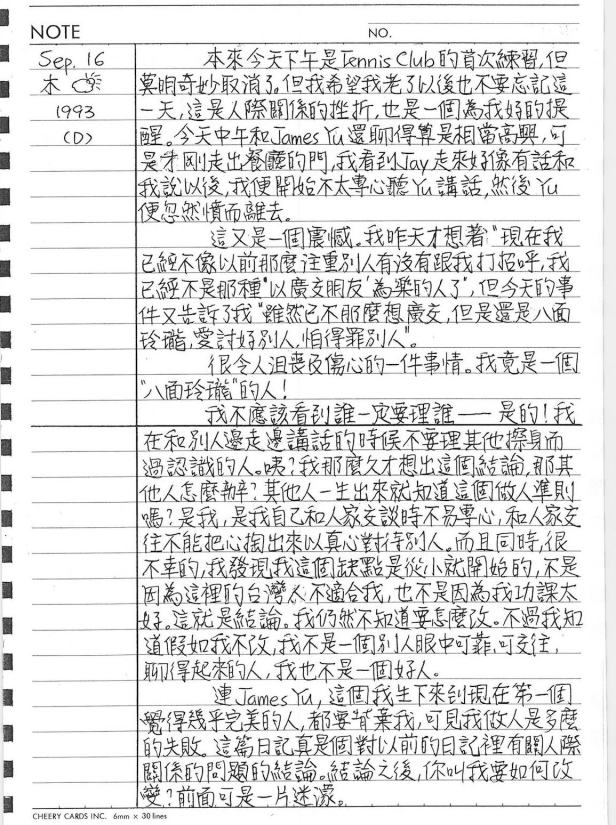 NOTE
NO.
Sep. 16
木
1993
(D)
本來今天下午是Tennis Club的首次練習,但
莫明奇妙取消了。但我希望我老了以後也不要忘記這
一天,這是人際關係的挫折,也是一個為我好的提
醒。今天中午和James Yu還聊得算是相當高興,可
是才剛走出餐廳的門,我看到Jay走來好像有話和
我說以後,我便開始不太專心聽Yu講話,然後Yu
便忽然憤而離去。
這又是一個震憾。我昨天才想著"現在我
已經不像以前那麼注重別人有沒有跟我打招呼,我
已經不是那種"以廣交朋友"為樂的人了",但今天的事
件又告訴了我"雖然已不那麼想廣交,但是還是八面
玲瓏,愛討好別人,怕得罪別人"。
很令人沮喪及傷心的一件事情。我竟是一個
"八面玲瓏"的人!
我不應該看到誰一定要理誰——是的!我
在和別人邊走邊講話的時候不要理其他擦身而
過認識的人。咦?我那麼久才想出這個結論,那其
他人怎麼辦?其他人一生出來就知道這個做人準則
嗎?是我,是我自己和人家交談時不易專心,和人家交
往不能把心掏出來以真心對待別人。而且同時,很
不幸的,我發現我這個缺點是從小就開始的,不是
因為這裡的台灣人不適合我,也不是因為我功課太
好。這就是結論。我仍然不知道要怎麼改。不過我知
道假如我不改,我不是一個別人眼中可靠,可交往,
聊得起來的人,我也不是一個好人。
連James Yu,這個我生下來到現在第一個
覺得幾乎完美的人,都要背棄我,可見我做人是多麼
的失敗。這篇日記真是個對以前的日記裡有關人際
關係的問題的結論。結論之後,你叫我要如何改
變?前面可是一片迷濛。
CHEERY CARDS INC. 6mm × 30 lines